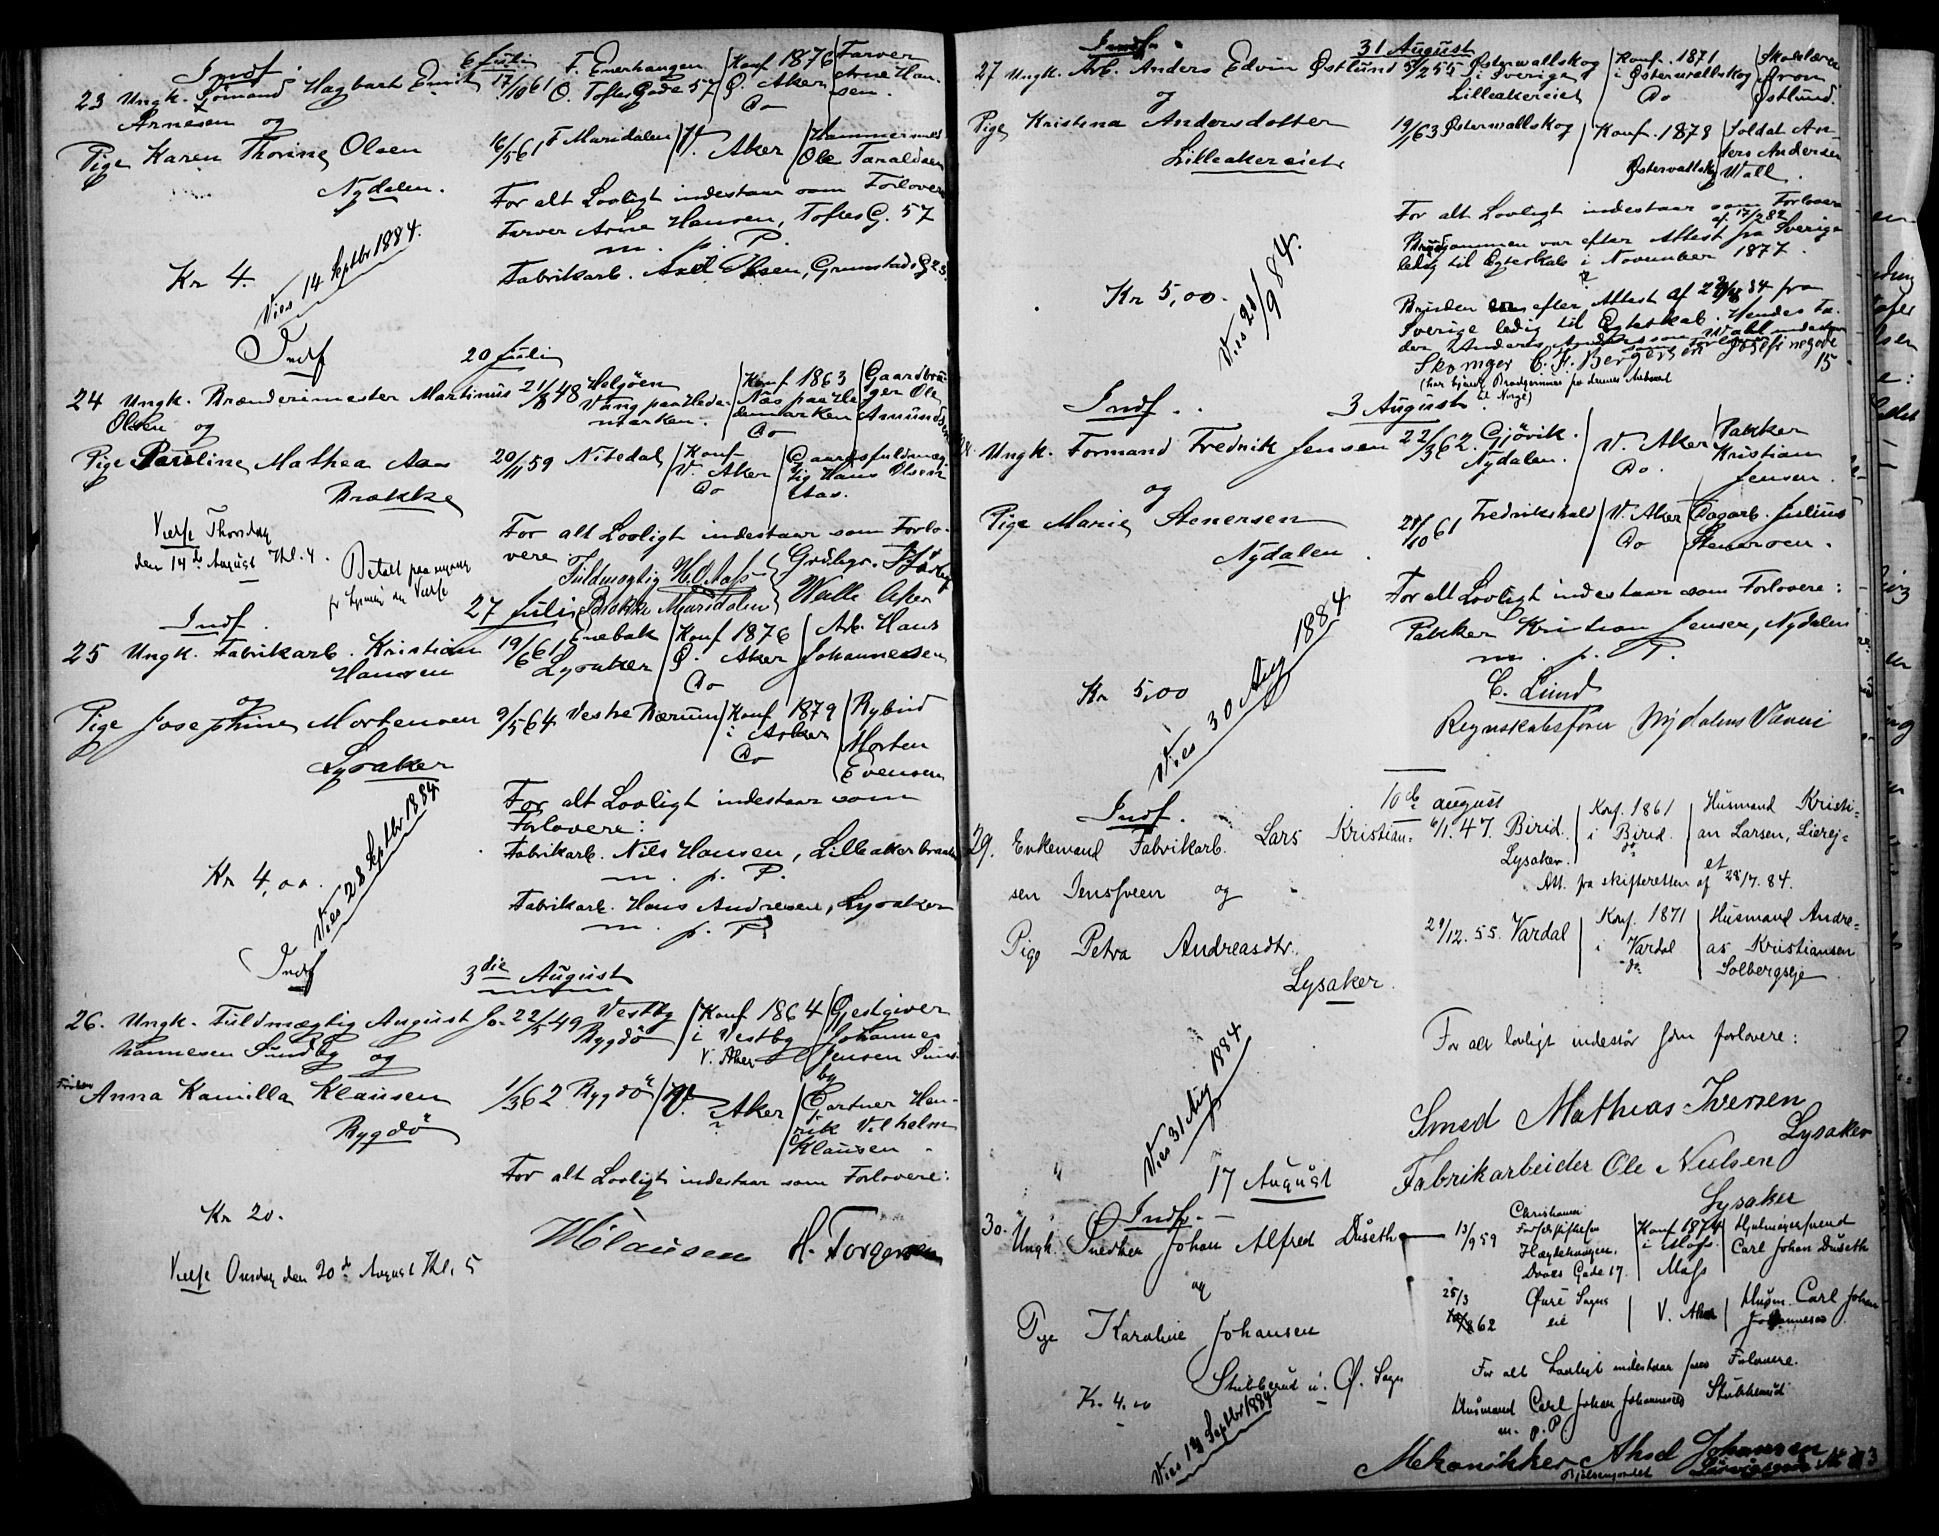 Indf.
6 Juli
23 Ungk. Sömand Hagbart Emil
Arnesen og
17/10 61 F. Enerhaugen
O. Toftes Gade 57
Konf 1876
Ø. Aker
Do
Farver
Arne Han-
sen.
Pige Karen Thorine Olsen
Nydalen.
16/5 61 F Maridalen
V. Aker
Hammersmed
Ole Taraldsen
For alt Lovligt indestaar som Forlovere
Farver Arne Hansen, Toftes G. 57
m. p. P.
Fabrikarb. Axel Olsen, Grunstads G 23
Kr 4.
Vies 14 Septbr 1884.
Indf
20 Juli
24 Ungk. Brænderimester Martinus
Olsen og
21/8 48 Helgöen
Vang paa Hede-
marken.
Konf 1863
Næs paa He-
demarken
Do
Gaardbru-
ger Ole
Amundsen
Pige Pauline Mathea Aas
Brække
20/11 59 Nitedal
Konf
V. Aker
Do
Gaardsfuldmæg-
tig Hans Olsen
Aas.
Vielse Thorsdag
den 14de August Kl. 4.
Betalt paa
for Lysning og Vielse
For alt Lovligt indestaar som Forlo-
vere:
Fuldmægtig H. O. Aas
Brække Maridalen
Grdbgr.
Vestre Aker
Indf.
27 Juli
25 Ungk. Fabrikarb. Kristian
Hansen
19/6 61 Enebak
Lysaker
Konf 1876
Ø. Aker
Do
Arb. Hans
Johannesen
og
Pige Josephine Mortensen
Lysaker
9/5 64 Vestre Bærum
Konf 1879
i Asker
Do
Rydnd
Morten
Evensen
For alt Lovligt indestaar som
Forlovere:
Fabrikarb. Nils Hansen, Lilleakerbraaten
m. p. P.
Fabrikarb. Hans Andresen, Lysaker
m. p. P.
Kr 4,00.
Vies 28 Septbr 1884.
Indf
3die August
26. Ungk. Fuldmægtig August Jo-
hannesen Sundby og
22/5 49 Vestby
Bygdö
Konf 1864
i Vestby
V. Aker
Gjestgiver
Johannes
Jensen Sund-
by
Frøken Anna Kamilla Klausen
Bygdö
1/3 62 Bygdö
V. Aker
Gartner Hen-
rik Vilhelm
Klausen
For alt Lovligt indestaar som Forlovere:
H Clausen H. Torgersen
Kr 20.
Vielse Onsdag den 20de August Kl. 5
Indf.
31 August
27 Ungk. Arb. Anders Edvin Østlund
5/2 55 Østerwallskog
i Sverige
Lilleakereiet
Konf. 1871
i Østerwallskog
Do
Skolelærer
Aron
Østlund.
og
Pige Kristina Andersdotter
Lilleakereiet
19/ 63 Østerwallskog
Konf. 1878
Østervallskog
Soldat An-
ders Andersen
Wall.
For alt Lovligt indestaar som Forlovere
Brudgommen var efter Attest fra Sverige
af 17/2 82
ledig til Egteskab i November 1877.
Bruden er efter Attest af 84 fra
Sverige ledig til Egteskab. Hendes Fa-
der Anders Andersson Wall indestaar
som Forlover
Skomager C. F. Bergersen Josefinegade
15
(har kjendt Brudgommen fra dennes Ankomst
til Norge)
Kr 5,00.
Vies 21/9 84.
Indf.
3 August.
28. Ungk. Formand Fredrik Jensen
22/3 62. Gjövik.
Nydalen.
V. Aker
Do.
Pakker
Kristian
Jensen.
og
Pige Marie Stenersen
Nydalen.
28/10 61 Fredrikshald
V. Aker
Do
Dagarb. Julius
Stenersen.
For alt Lovligt indestaar som Forlovere:
Pakker Kristian Jensen, Nydalen
m. p. P.
C. Lund
Regnskabsfører Nydalens Væveri
Kr 5,00
Vies 30 Aug 1884
10de august
Indf.
29. Enkemand Fabrikarb. Lars Kristian-
sen Jensveen og
6/1. 47. Birid.
Lysaker.
Konf. 1861
i Birid.
do
Husmand Kristi-
an Larsen, Lierej-
et
Att. fra skifteretten af 28/7. 84.
Pige Petra Andreasdtr.
Lysaker.
29/12. 55. Vardal
Konf. 1871
i Vardal
do
Husmand Andre-
as Kristiansen
Solbergseje
For alt lovligt indestår som forlovere:
Smed Mathias Iversen
Lysaker
Fabrikarbeider Ole Nielsen
Lysaker
Vies 31 Aug 1884
17 August
Indf.
30. Ungk. Snedker Johan Alfred Duseth
13/9 59
Christiania
Hægdehaugen.
Daaes Gade 17.
Konf 1874
i Moss.
Moss
Hjulmagersvend
Carl Johan Duseth
og
Pige Karoline Johansen
Stubberud i Ø. Sogn
25/3
62
Øvre Sogns
eie
V. Aker
Husm. Carl Johan
Johannesen
For alt Lovligt indestaar som Forlovere.
Husmand Carl Johan Johannesen Stubberud
m. p. P.
Mekanikker Aksel Johansen
Bjölsengordet
Kr. 4.00
Vies 14 Septbr 1884